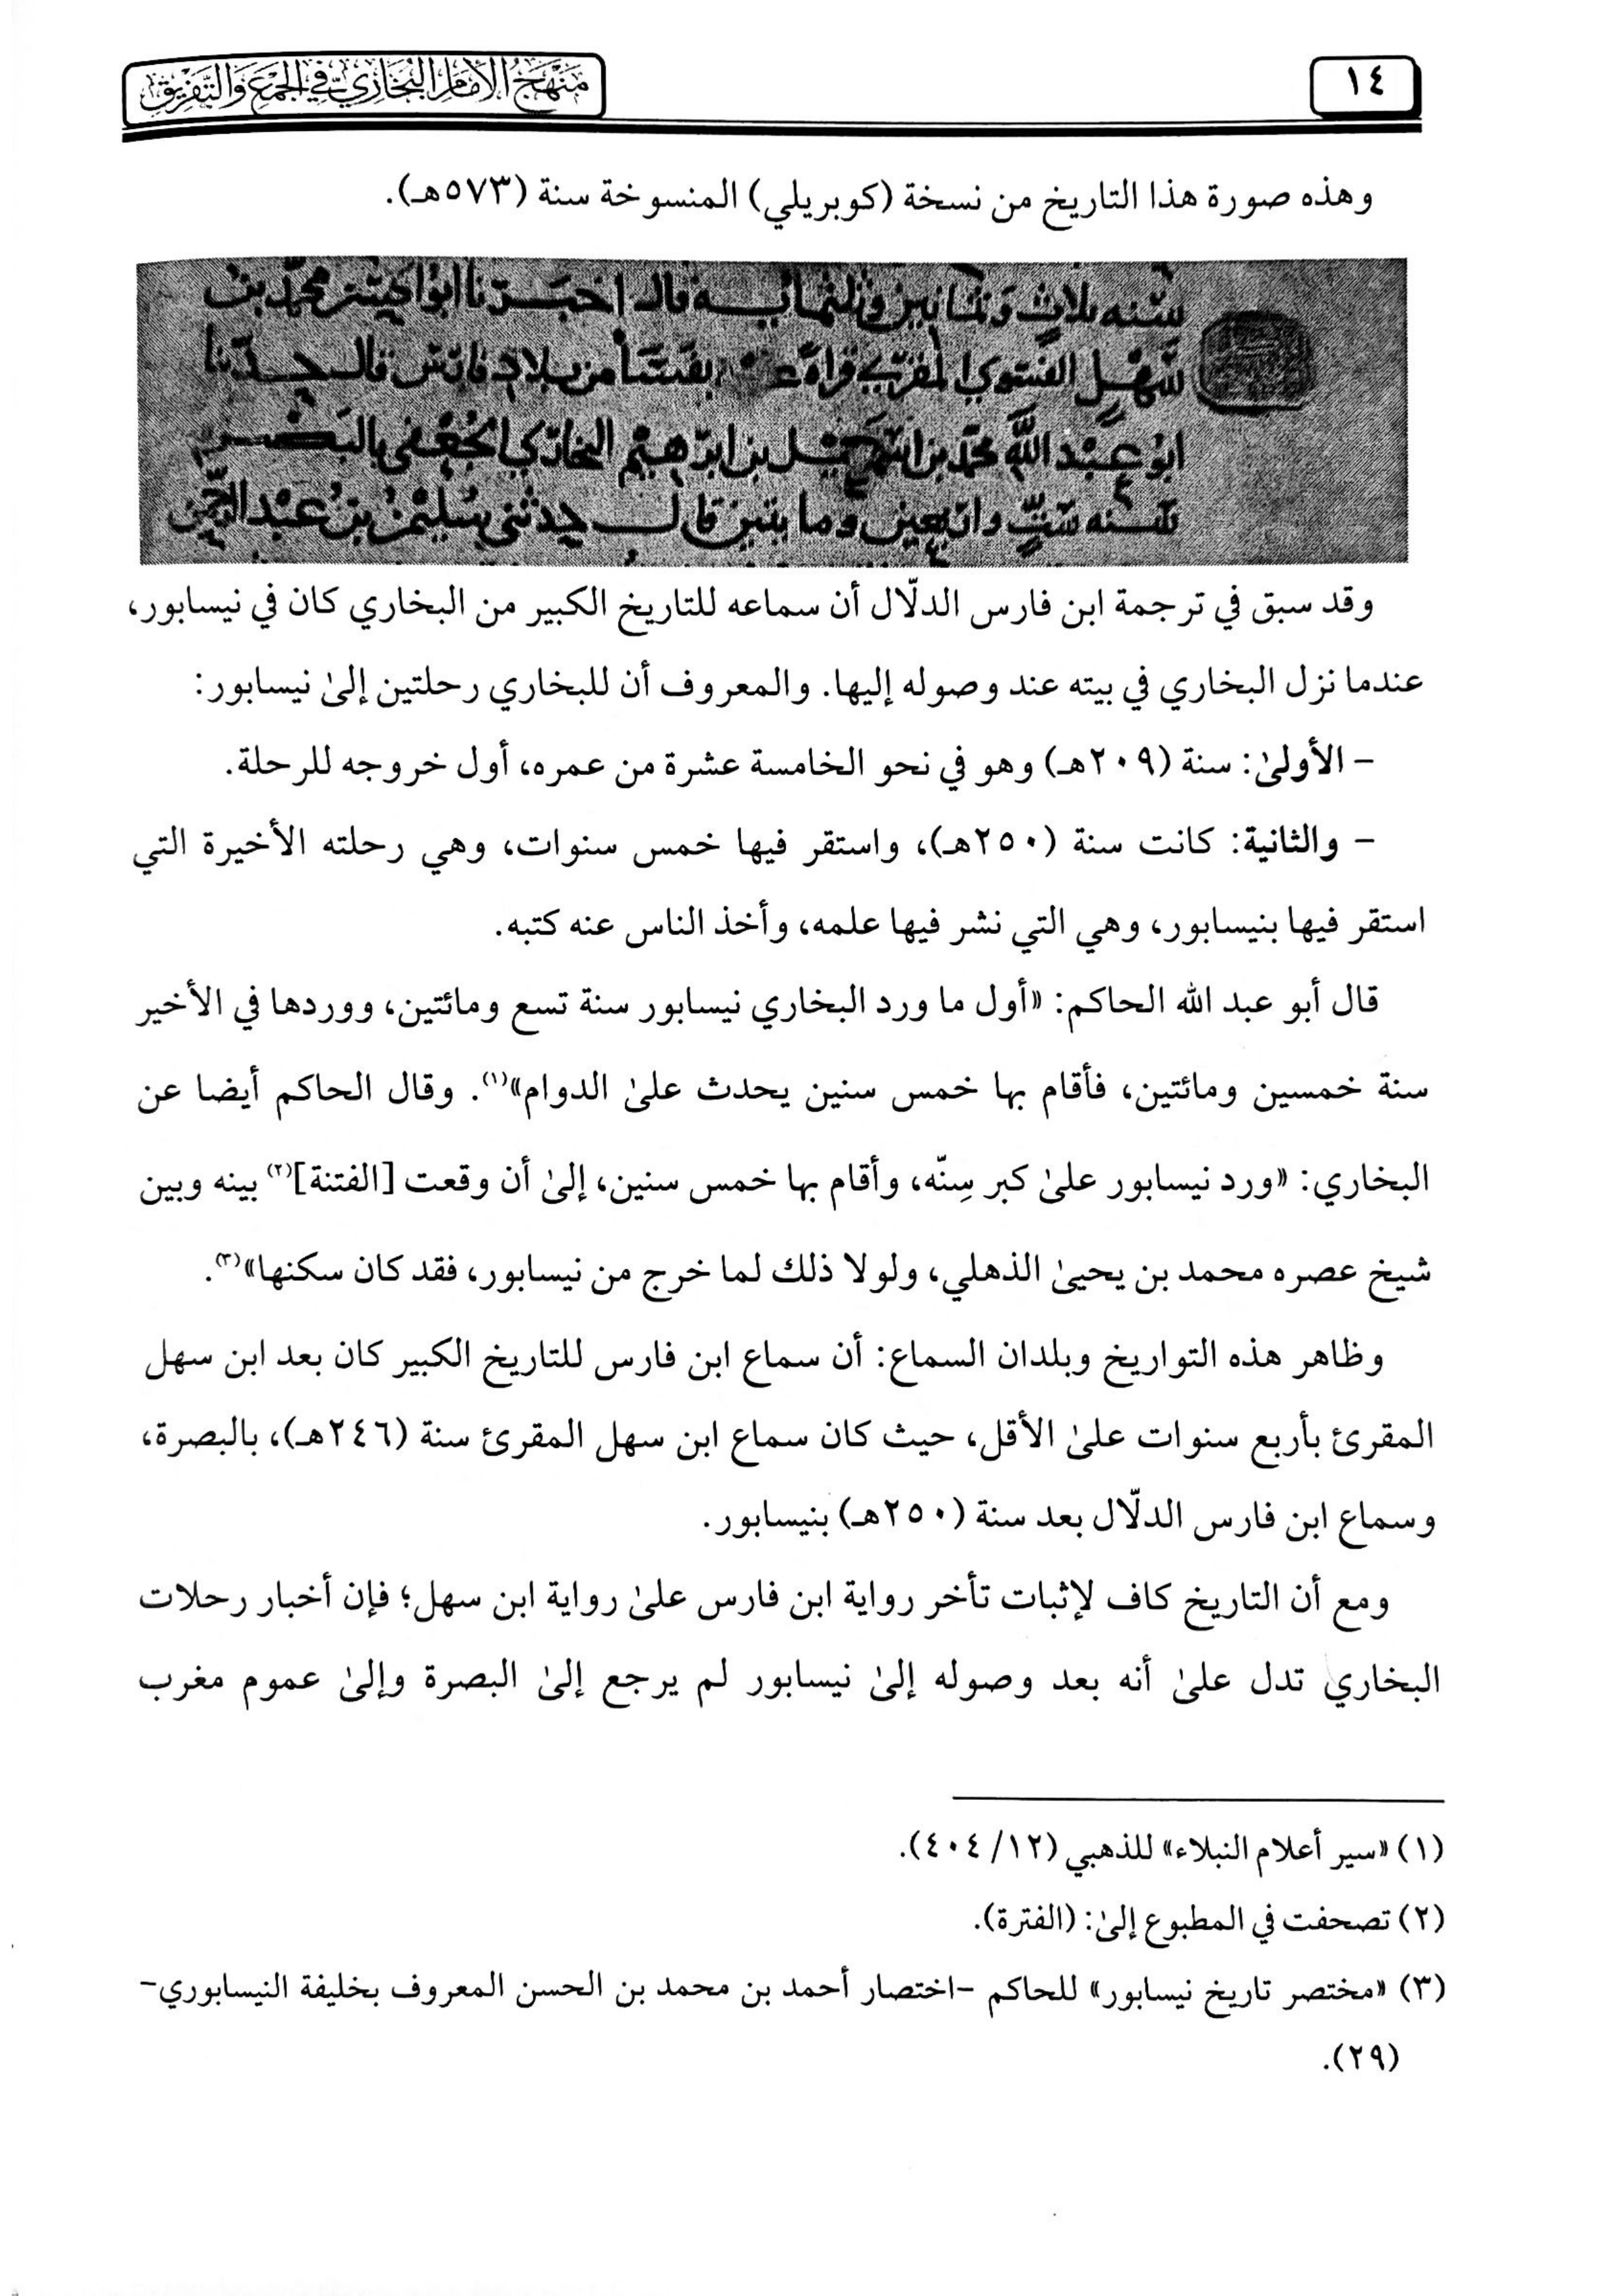 ١٤
منهج الإمام البخاري في الجمع والتفريق
وهذه صورة هذا التاريخ من نسخة (كوبريلي) المنسوخة سنة (٥٧٣هـ).
سنه ثلاث وثمانين وثلثمايه قال اخبرنا ابو الحسن محمد بن
سهل الفسوي المقرى قراة بفسا من بلاد فارس قال حدثنا
ابو عبد الله محمد بن اسمعيل بن ابرهيم البخاري الجعفي بالبصره
سنه ست واربعين ومايتين قال حدثني سليمن بن عبد الرحمن
وقد سبق في ترجمة ابن فارس الدلّال أن سماعه للتاريخ الكبير من البخاري كان في نيسابور،
عندما نزل البخاري في بيته عند وصوله إليها. والمعروف أن للبخاري رحلتين إلىٰ نيسابور:
- الأولىٰ: سنة (٢٠٩هـ) وهو في نحو الخامسة عشرة من عمره، أول خروجه للرحلة.
- والثانية: كانت سنة (٢٥٠هـ)، واستقر فيها خمس سنوات، وهي رحلته الأخيرة التي
استقر فيها بنيسابور، وهي التي نشر فيها علمه، وأخذ الناس عنه كتبه.
قال أبو عبد الله الحاكم: «أول ما ورد البخاري نيسابور سنة تسع ومائتين، ووردها في الأخير
سنة خمسين ومائتين، فأقام بها خمس سنين يحدث علىٰ الدوام»(١). وقال الحاكم أيضا عن
البخاري: «ورد نيسابور علىٰ كبر سِنّه، وأقام بها خمس سنين، إلىٰ أن وقعت [الفتنة](٢) بينه وبين
شيخ عصره محمد بن يحيىٰ الذهلي، ولولا ذلك لما خرج من نيسابور، فقد كان سكنها»(٣).
وظاهر هذه التواريخ وبلدان السماع: أن سماع ابن فارس للتاريخ الكبير كان بعد ابن سهل
المقرئ بأربع سنوات علىٰ الأقل، حيث كان سماع ابن سهل المقرئ سنة (٢٤٦هـ)، بالبصرة،
وسماع ابن فارس الدلّال بعد سنة (٢٥٠هـ) بنيسابور.
ومع أن التاريخ كاف لإثبات تأخر رواية ابن فارس علىٰ رواية ابن سهل؛ فإن أخبار رحلات
البخاري تدل علىٰ أنه بعد وصوله إلىٰ نيسابور لم يرجع إلىٰ البصرة وإلىٰ عموم مغرب
(١) «سير أعلام النبلاء» للذهبي (١٢/ ٤٠٤).
(٢) تصحفت في المطبوع إلىٰ: (الفترة).
(٣) «مختصر تاريخ نيسابور» للحاكم -اختصار أحمد بن محمد بن الحسن المعروف بخليفة النيسابوري-
(٢٩).